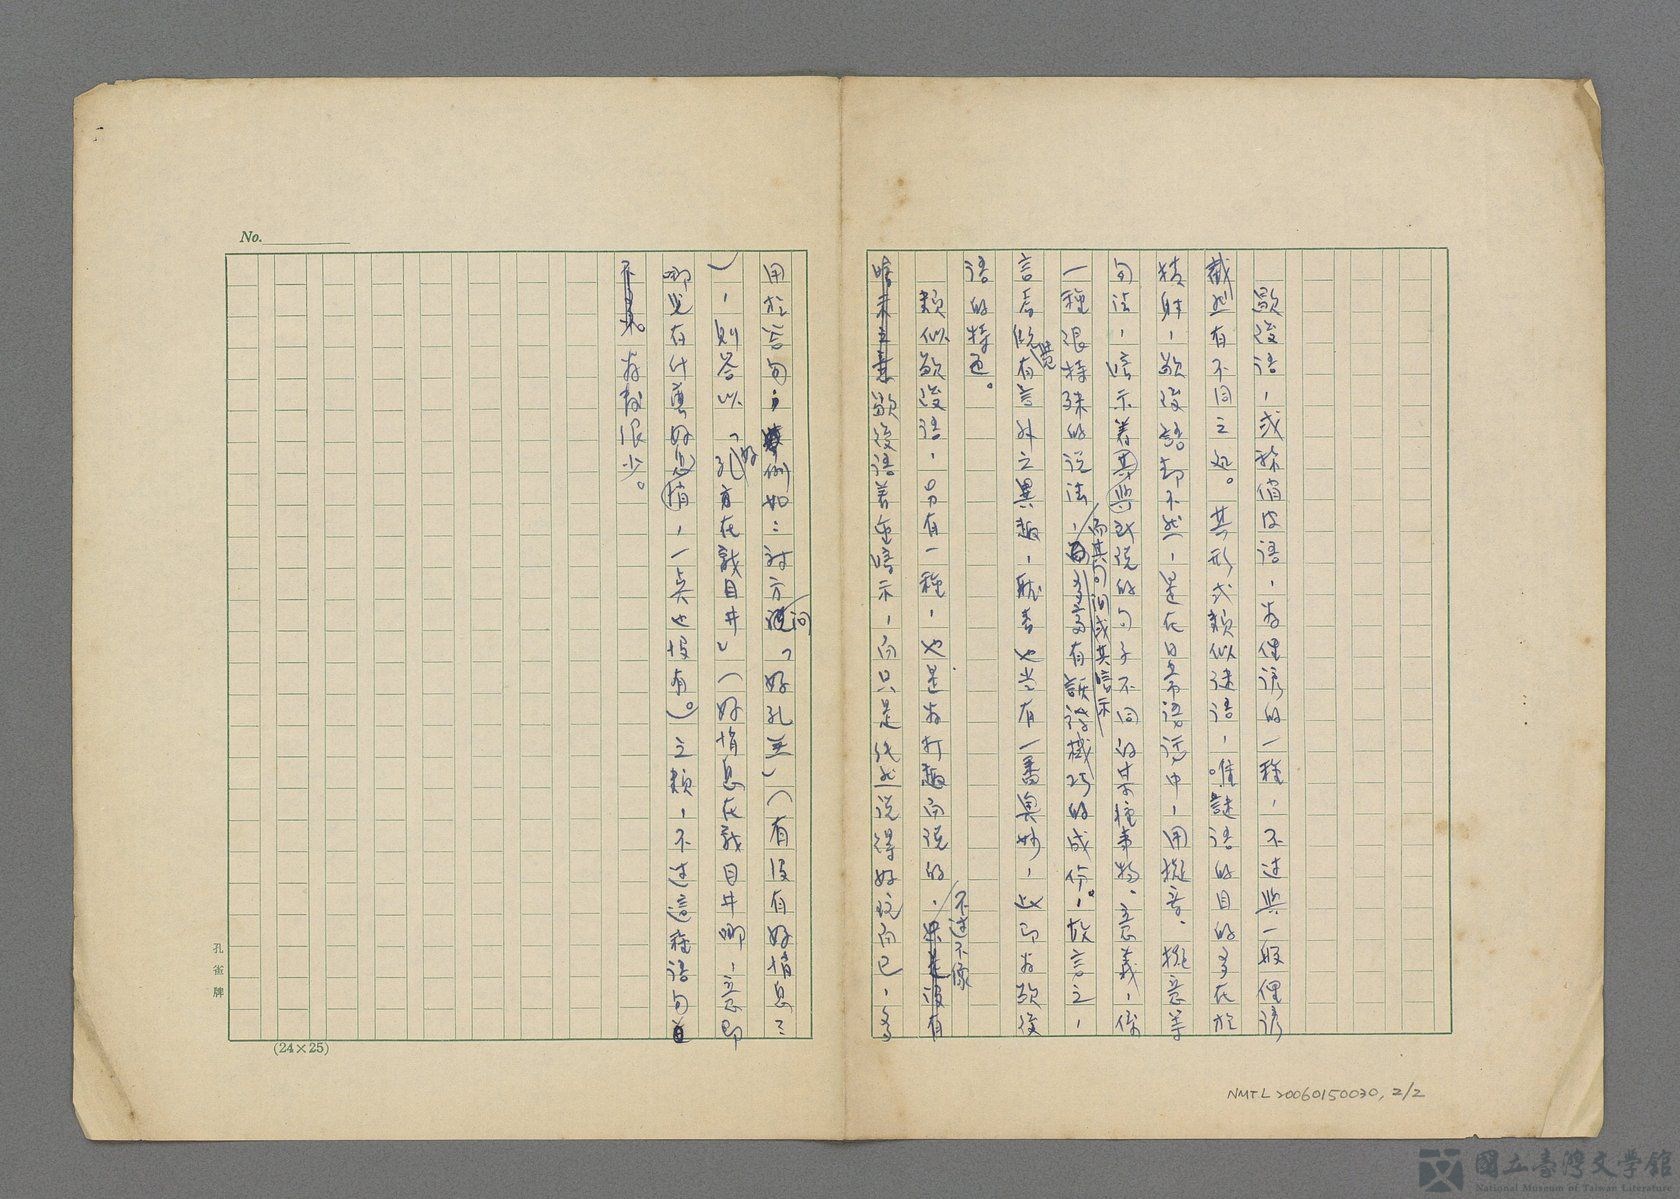 歇後語,或称俏皮語,為俚諺的一種,不过與一般俚諺
截然有不同之处。其形式類似谜语,唯謎语的目的多在於
猜射,歇後語却不然,是在日常語言中,用擬音、擬意等
句法,暗示着與所说的句子不同的某種事物、意義,係
而其句法或其暗示
一種很特殊的说法,多富有詼諧機巧的成份,故言之,
言者既覺有言外之異趣,聽者也当有一番奥妙,此即為歇後
语的特色。
類似歇後语,另有一種,也是為打趣而说的,
不过不像
没有
歇後语着重暗示,而只是純然说得好玩而已,多
用於答句,例如:对方问「好孔無」(有没有好悄息?
),則答以「好孔在龍目井」(好悄息在龍目井哪,意即
哪兒在什麼好悄息,一点也没有。)之類,不过這種语句
為数很少。
No.
(24×25)
孔雀牌
NMTL20060150030, 2/2
國立臺灣文學館
National Museum of Taiwan Literature